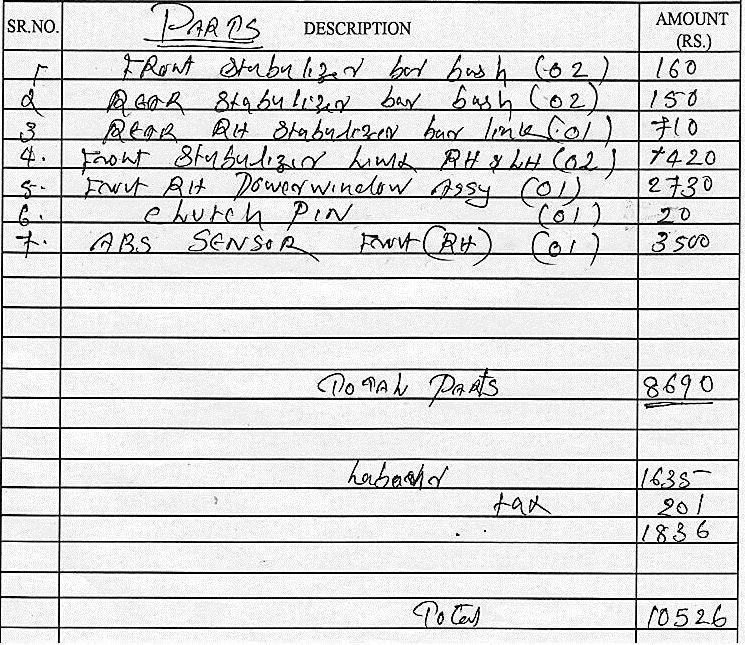 SR.NO. PARTS DESCRIPTION AMOUNT (RS.)
1 FRont Stabulizer bar bush (02) 160
2 REAR Stabulizer bar bush (02) 150
3 REAR RH Stabulizer bar link (01) 710
4. Front Stabulizer Link RH & LH (02) 1420
5. Front RH Powerwindow Assy (01) 2730
6. clutch PIN (01) 20
7. ABS SENSOR Front (RH) (01) 3500
TOTAL PARTS 8690
1635
tax 201
1836
Total 10526